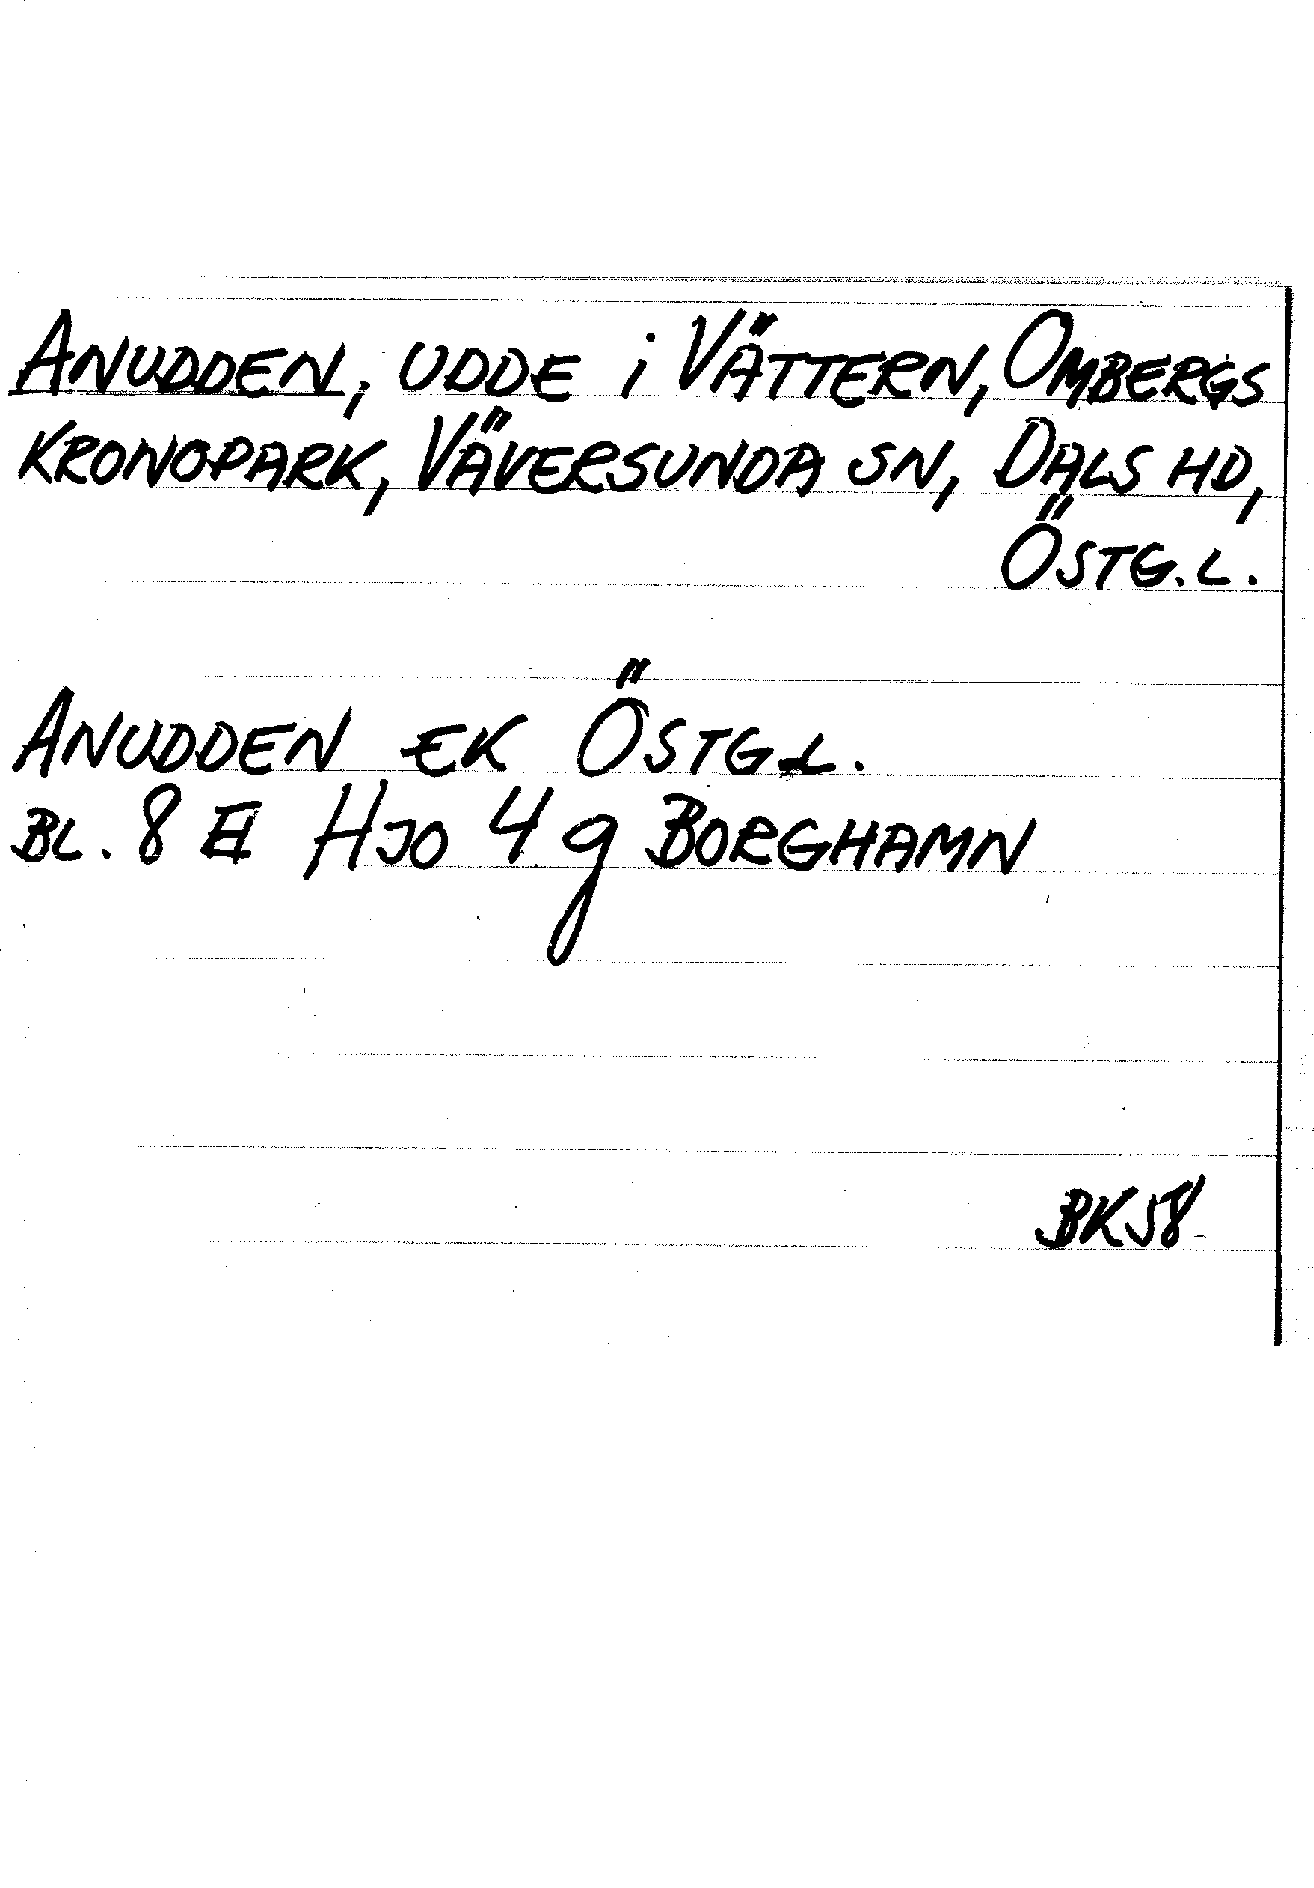 ANUDDEN, UDDE i VÄTTERN, OMBERGS
KRONOPARK, VÄVERSUNDA SN, DALS HD,
ÖSTG.L.
ANUDDEN EK ÖSTG.L.
BL. 8 E HJO 4 g BORGHAMN
BK58